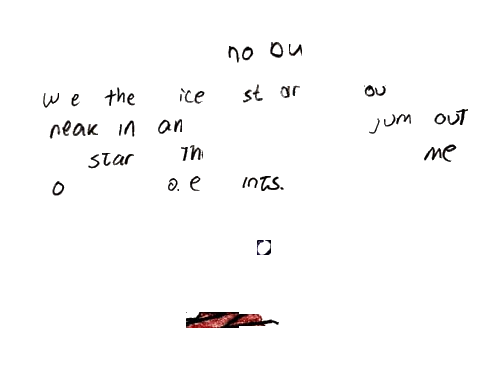 no ou
w e the ice st ar ou
neak in an jum out
star Th me
o o.e ints.